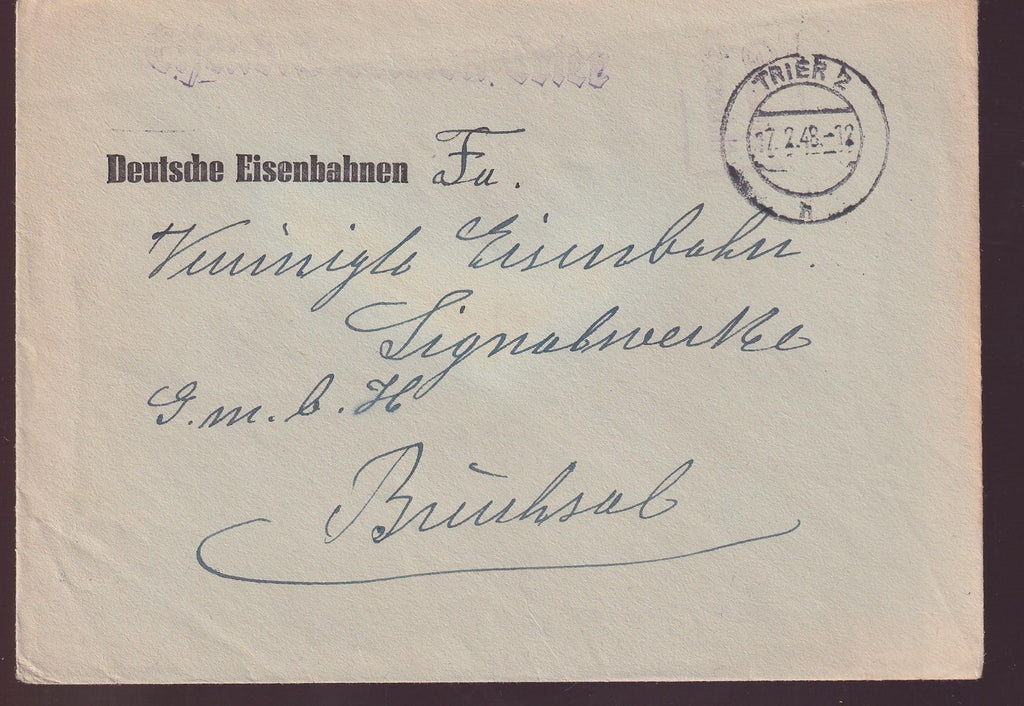 TRIER 2
17.2.48.-12
h
Deutsche Eisenbahnen Fa.
Vereinigte Eisenbahn.
Signalwerke
G.m.b.H
Bruchsal